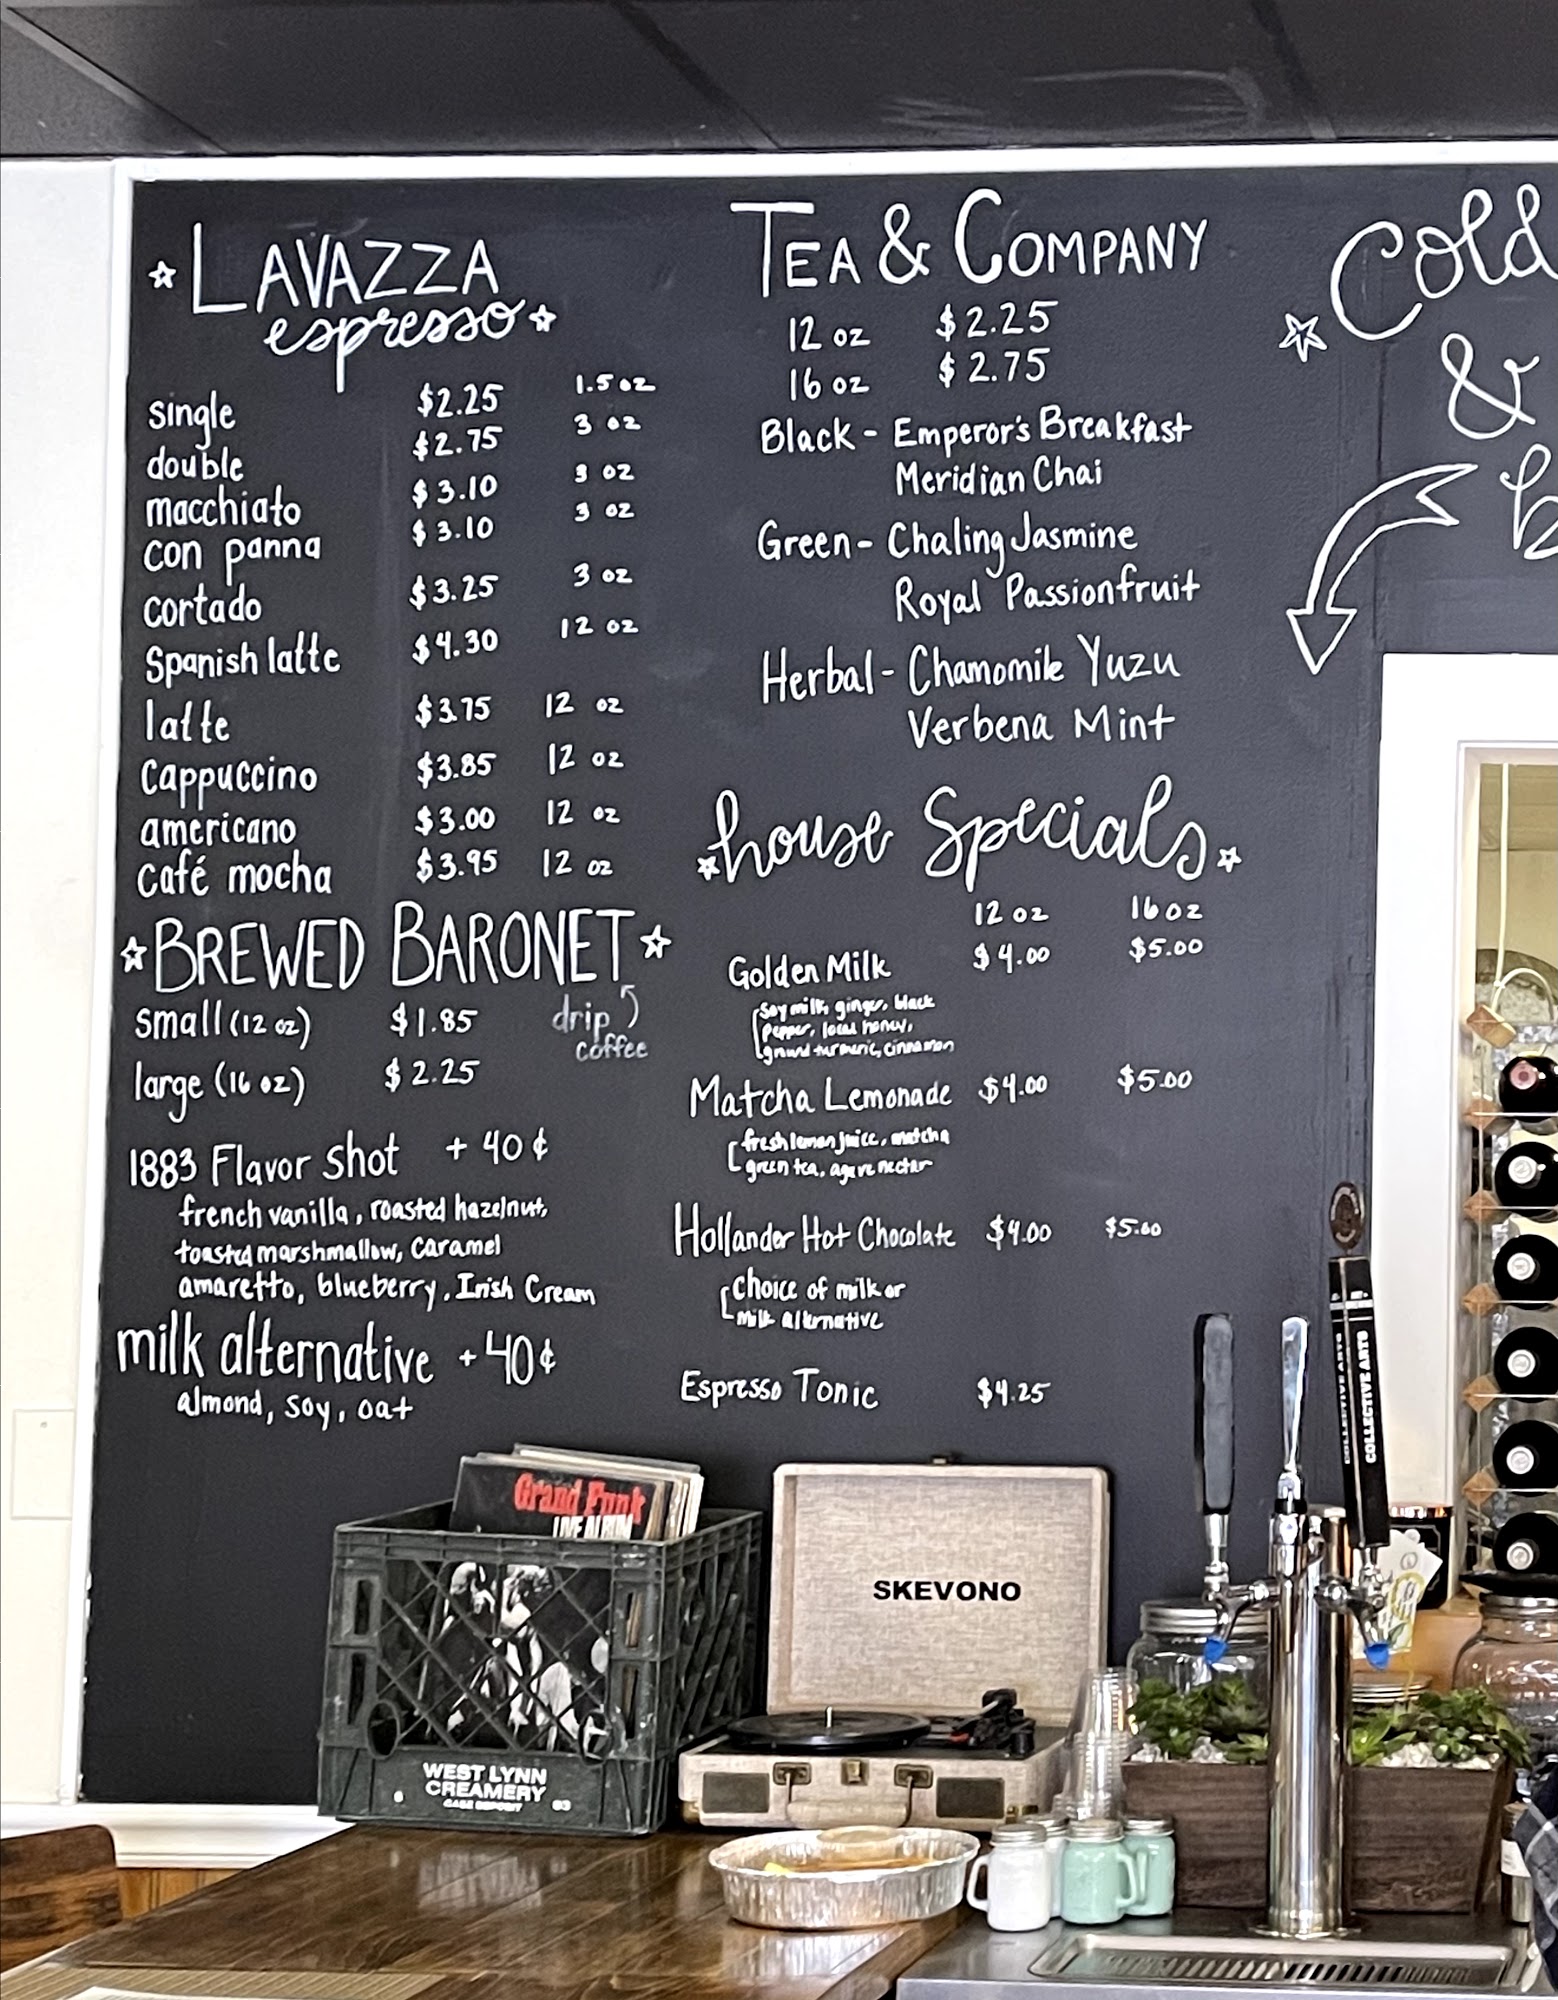 LAVAZZA
espresso
single $2.25 1.5 oz
double $2.75 3 oz
macchiato $3.10 3 oz
con panna $3.10 3 oz
cortado $3.25 3 oz
Spanish latte $4.30 12 oz
latte $3.75 12 oz
Cappuccino $3.85 12 oz
americano $3.00 12 oz
café mocha $3.95 12 oz
BREWED BARONET
small (12 oz) $1.85
drip
coffee
large (16 oz) $2.25
1883 Flavor Shot + 40¢
french vanilla, roasted hazelnut,
toasted marshmallow, caramel
amaretto, blueberry, Irish Cream
milk alternative + 40¢
almond, soy, oat
TEA & COMPANY
12 oz $2.25
16 oz $2.75
Black - Emperor's Breakfast
Meridian Chai
Green - Chaling Jasmine
Royal Passionfruit
Herbal - Chamomile Yuzu
Verbena Mint
house Specials
12 oz 16 oz
Golden Milk $4.00 $5.00
soy milk, ginger, black
pepper, local honey,
ground turmeric, cinnamon
Matcha Lemonade $4.00 $5.00
fresh lemon juice, matcha
green tea, agave nectar
Hollander Hot Chocolate $4.00 $5.00
choice of milk or
milk alternative
Espresso Tonic $4.25
Cold
&
b
Grand Funk
LIVE ALBUM
WEST LYNN
CREAMERY
SKEVONO
COLLECTIVE ARTS
COLLECTIVE ARTS